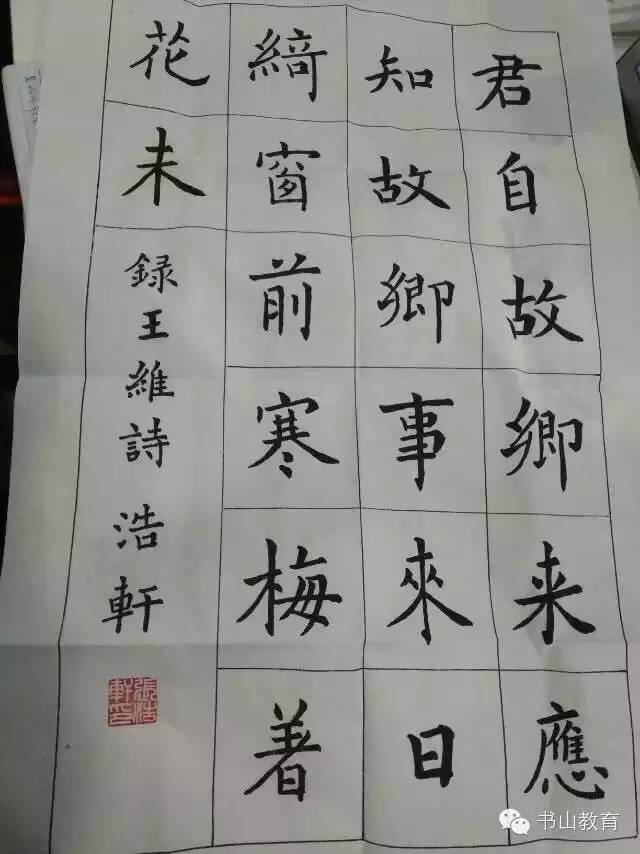 君自故鄉来應
知故鄉事來日
綺窗前寒梅着
花未
録王維詩 浩軒
張浩軒印
书山教育